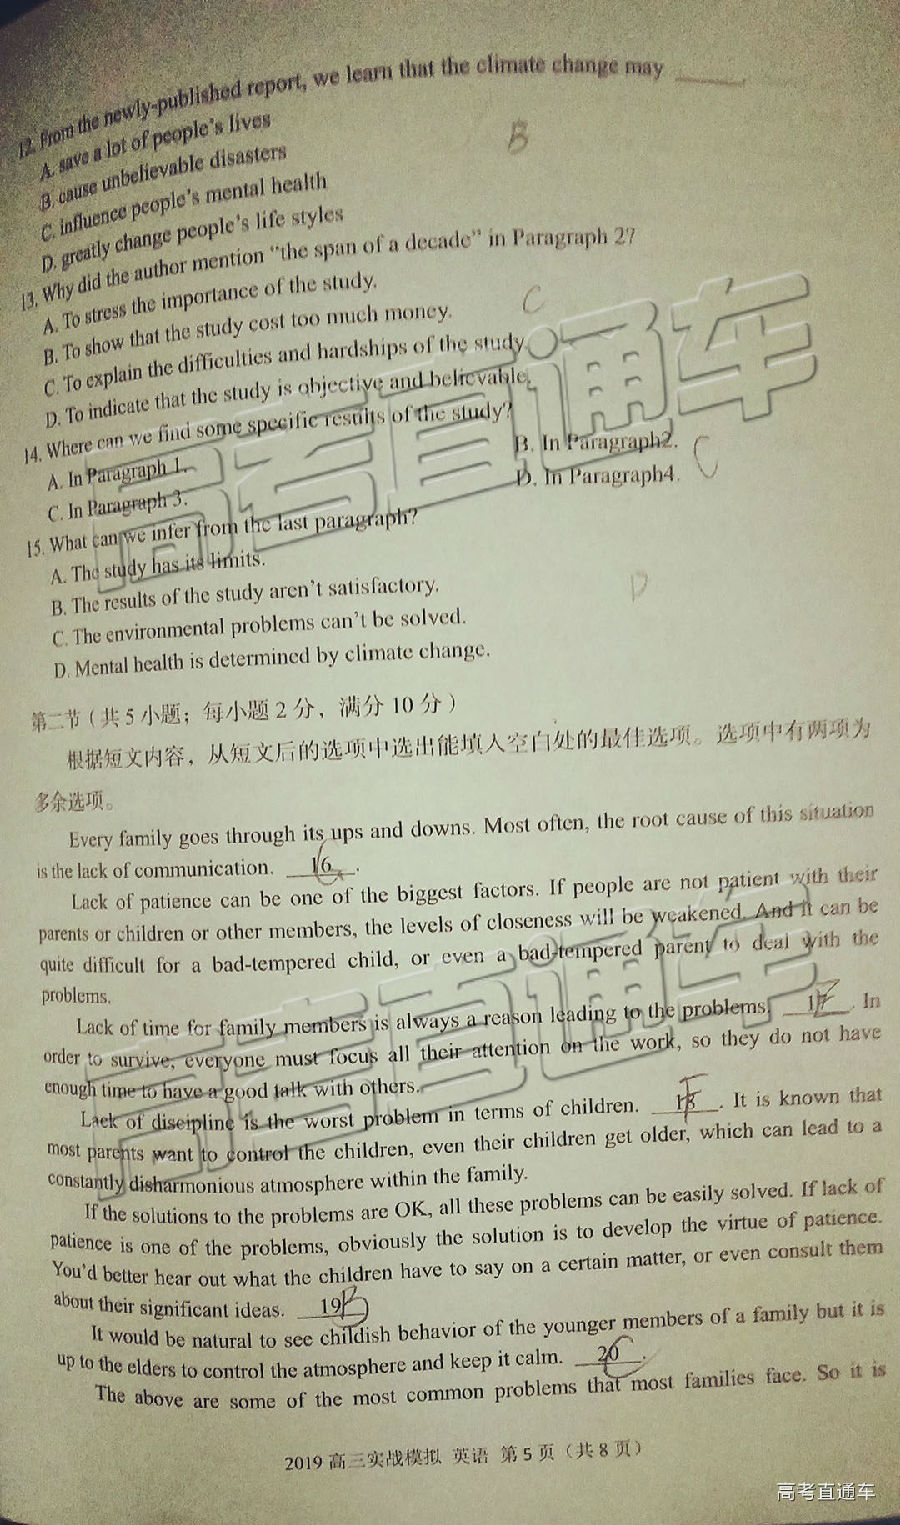 12. From the newly-published report, we learn that the climate change may ______.
A. save a lot of people's lives
B
B. cause unbelievable disasters
C. influence people's mental health
D. greatly change people's life styles
13. Why did the author mention "the span of a decade" in Paragraph 2?
A. To stress the importance of the study.
C
B. To show that the study cost too much money.
C. To explain the difficulties and hardships of the study.
D. To indicate that the study is objective and believable.
14. Where can we find some specific results of the study?
A. In Paragraph 1. B. In Paragraph2.
C
C. In Paragraph 3. D. In Paragraph4.
15. What can we infer from the last paragraph?
A. The study has its limits.
B. The results of the study aren't satisfactory.
D
C. The environmental problems can't be solved.
D. Mental health is determined by climate change.
第二节（共 5 小题；每小题 2 分，满分 10 分）
根据短文内容，从短文后的选项中选出能填入空白处的最佳选项。选项中有两项为
多余选项。
Every family goes through its ups and downs. Most often, the root cause of this situation
is the lack of communication. 16 .
Lack of patience can be one of the biggest factors. If people are not patient with their
parents or children or other members, the levels of closeness will be weakened. And it can be
quite difficult for a bad-tempered child, or even a bad-tempered parent to deal with the
problems.
Lack of time for family members is always a reason leading to the problems. 17 . In
order to survive, everyone must focus all their attention on the work, so they do not have
enough time to have a good talk with others.
Lack of discipline is the worst problem in terms of children. 18 . It is known that
most parents want to control the children, even their children get older, which can lead to a
constantly disharmonious atmosphere within the family.
If the solutions to the problems are OK, all these problems can be easily solved. If lack of
patience is one of the problems, obviously the solution is to develop the virtue of patience.
You'd better hear out what the children have to say on a certain matter, or even consult them
about their significant ideas. 19 B
It would be natural to see childish behavior of the younger members of a family but it is
up to the elders to control the atmosphere and keep it calm. 20 .
The above are some of the most common problems that most families face. So it is
2019 高三实战模拟 英语 第 5 页（共 8 页）
高考直通车
高考直通车
高考直通车